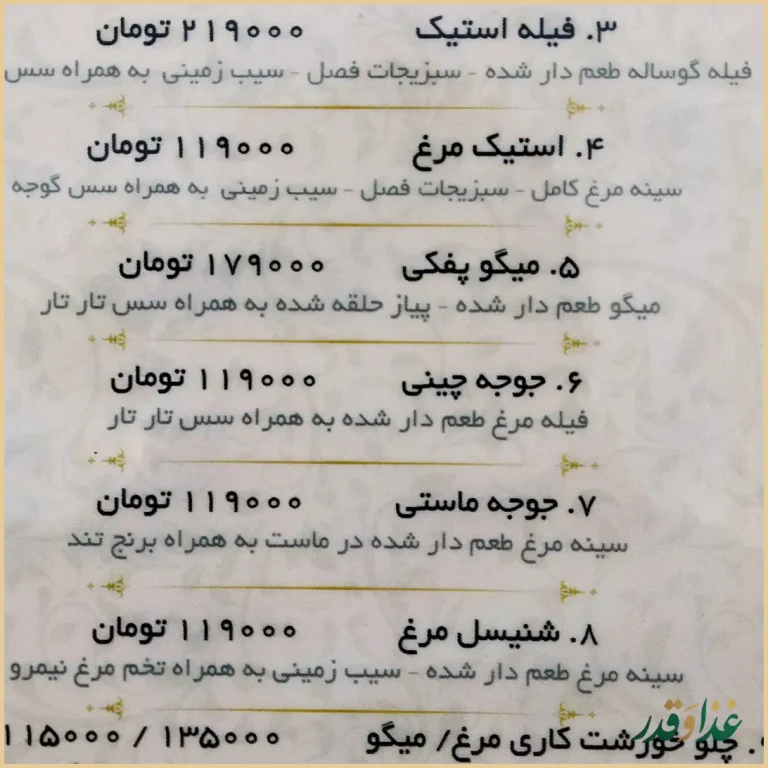 ۳. فیله استیک ۲۱۹۰۰۰ تومان
فیله گوساله طعم دار شده - سبزیجات فصل - سیب زمینی به همراه سس
۴. استیک مرغ ۱۱۹۰۰۰ تومان
سینه مرغ کامل - سبزیجات فصل - سیب زمینی به همراه سس گوجه
۵. میگو پفکی ۱۷۹۰۰۰ تومان
میگو طعم دار شده - پیاز حلقه شده به همراه سس تار تار
۶. جوجه چینی ۱۱۹۰۰۰ تومان
فیله مرغ طعم دار شده به همراه سس تار تار
۷. جوجه ماستی ۱۱۹۰۰۰ تومان
سینه مرغ طعم دار شده در ماست به همراه برنج تند
۸. شنیسل مرغ ۱۱۹۰۰۰ تومان
سینه مرغ طعم دار شده - سیب زمینی به همراه تخم مرغ نیمرو
۹. چلو خورشت کاری مرغ/ میگو ۱۳۵۰۰۰ / ۱۱۵۰۰۰
غذا و قدر